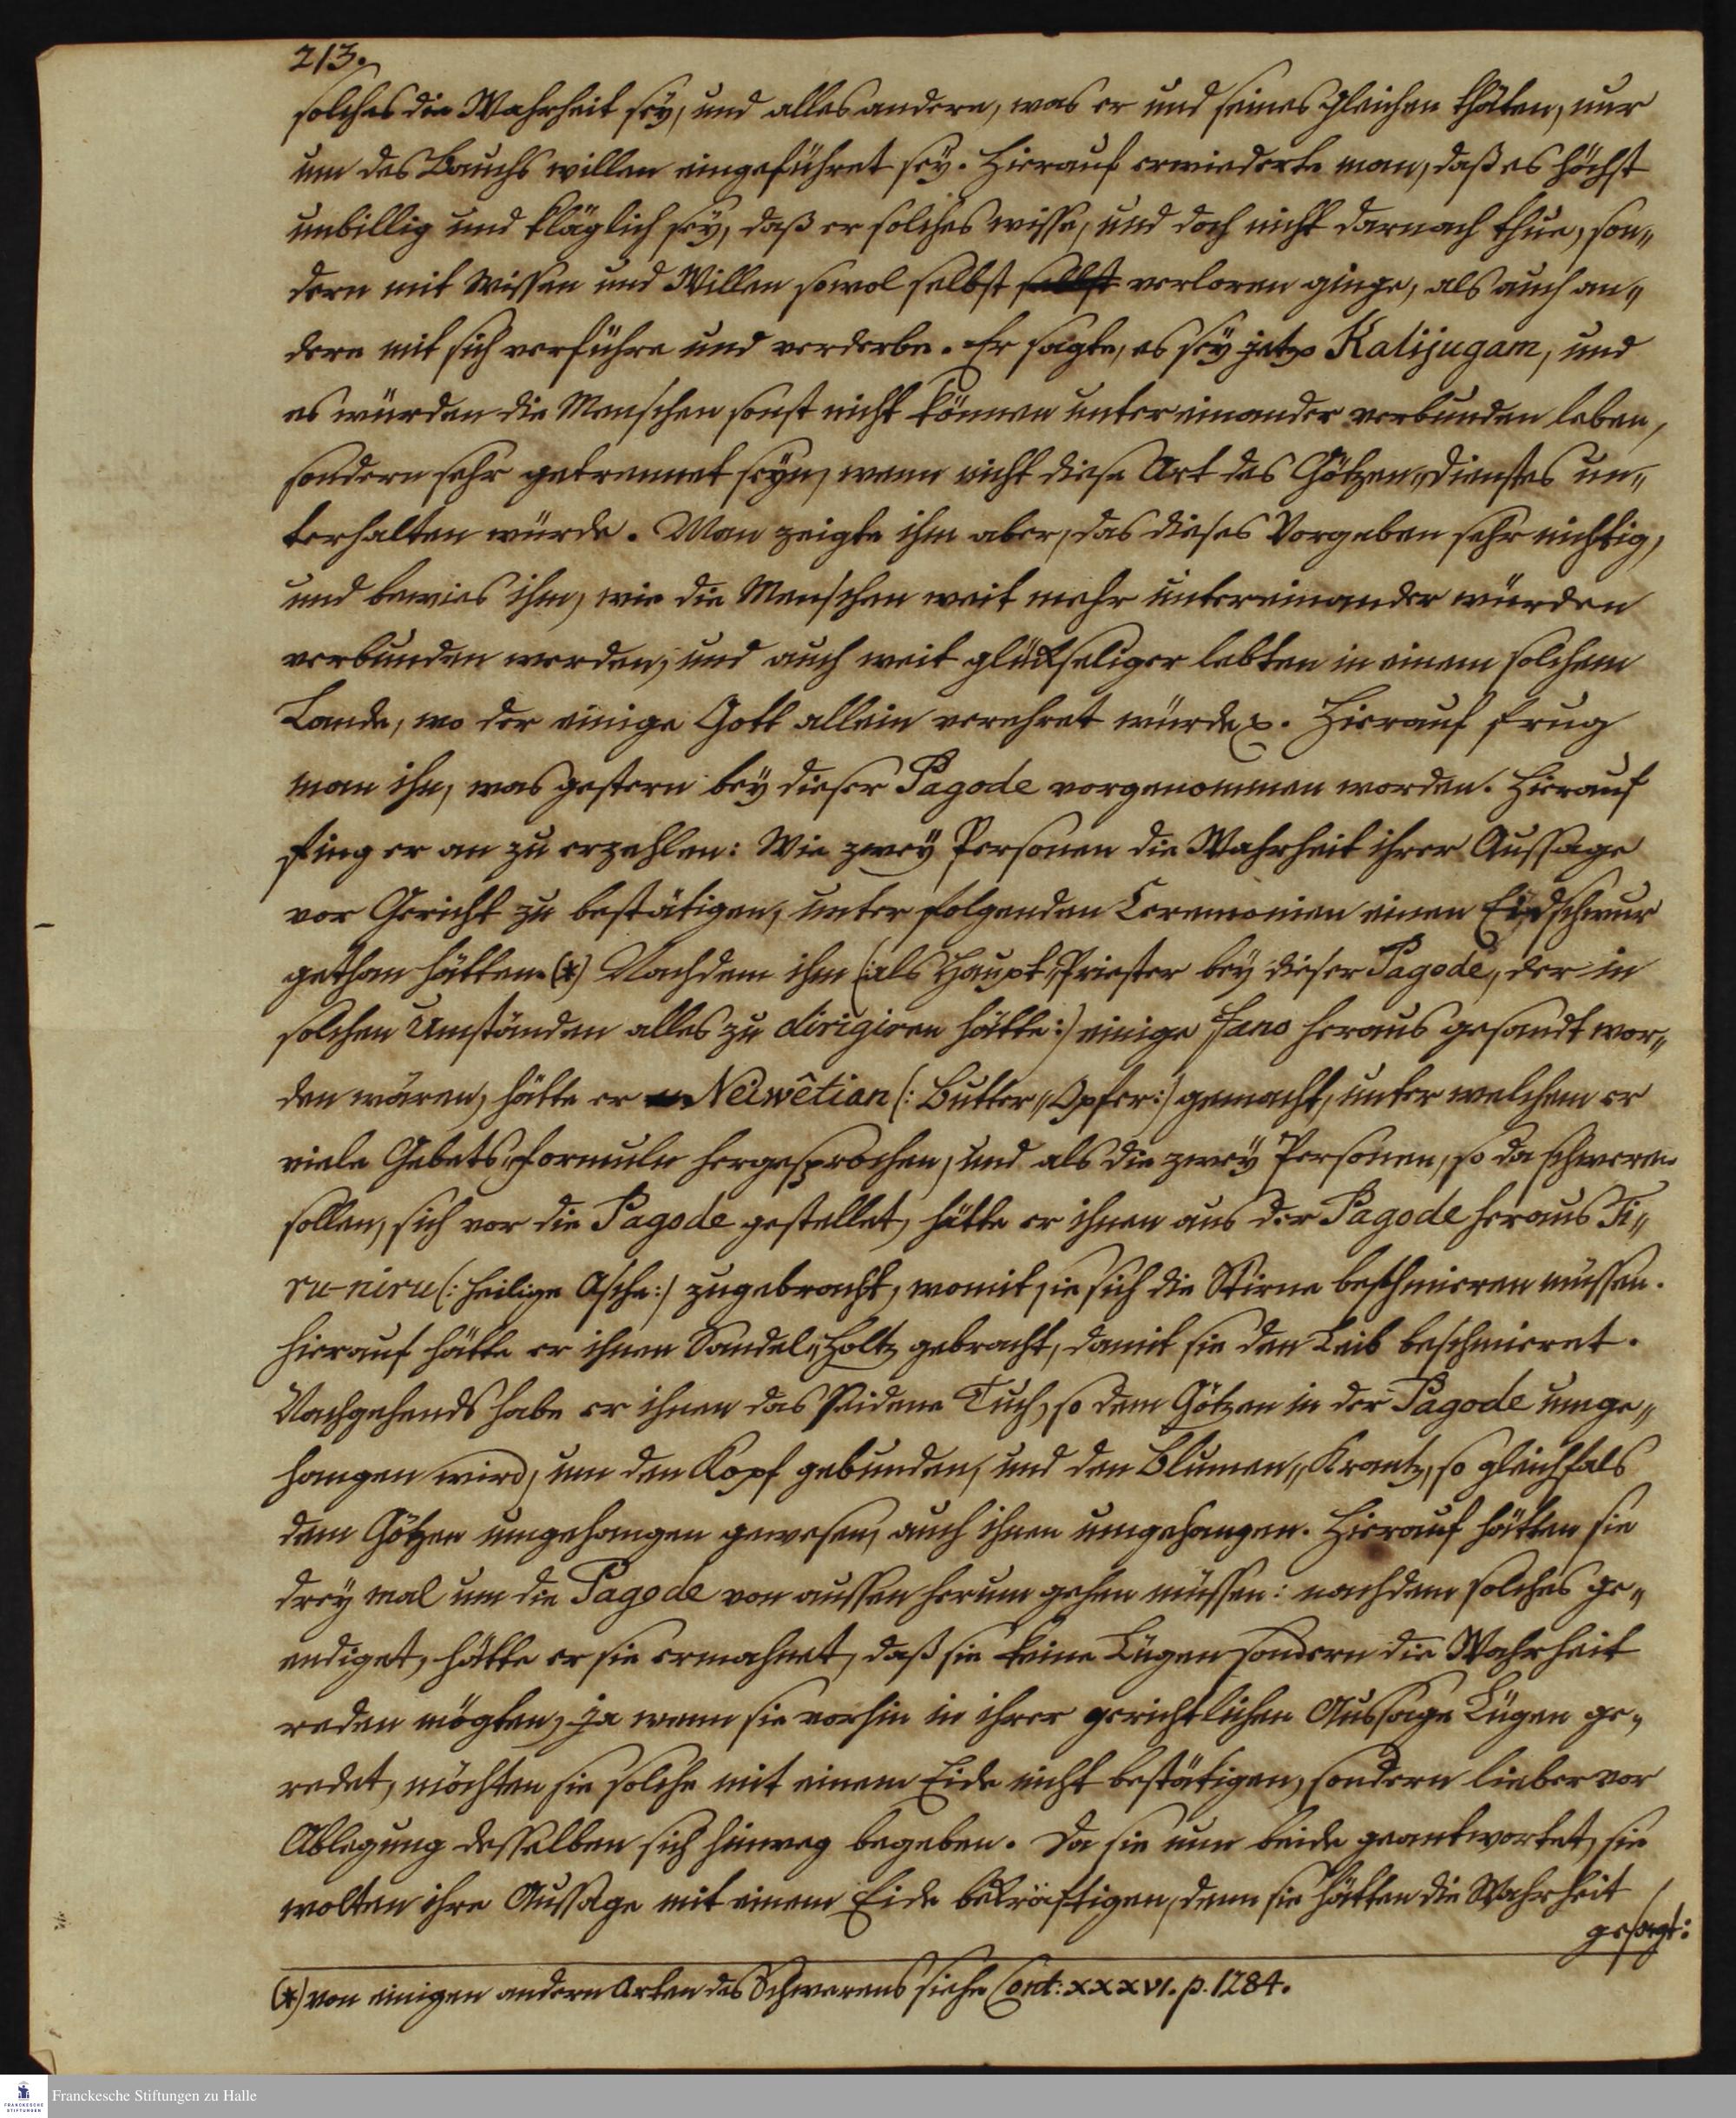 213.
solches die Wahrheit sey, und alles andere, was er und seines gleichen thäten, nur
um des Bauchs willen eingeführet sey. Hierauf erwiederte man, daß es höchst
unbillig und kläglich sey, daß er solches wisse, und doch nicht darnach thue, son„
dern mit Wissen und Willen sowol selbst selbst verloren ginge, als auch an„
dere mit sich verführe und verderbe. Er sagte, es sey jetzo Kalijugam, und
es würden die Menschen sonst nicht können unter einander verbunden leben,
sondern sehr getrennet seyn, wenn nicht diese Art des Götzen„dienstes un„
terhalten würde. Man zeigte ihm aber, das dieses Vorgeben sehr nichtig,
und bewies ihm, wie die Menschen weit mehr untereinander würden
verbunden werden, und auch weit glückseliger lebten in einem solchem
Lande, wo der einige Gott allein verehret würde . Hierauf frug
man ihn, was gestern bey dieser Pagode vorgenommen worden. Hierauf
fing er an zu erzehlen: Wie zwey Personen die Wahrheit ihrer Aussage
vor Gericht zu bestätigen, unter folgenden Ceremonien einen Eidschwur
gethan hätten.(*) Nachdem ihm (:als Haupt„Priester bey dieser Pagode, der in
solchen Umständen alles zu dirigiren hätte:) einige Fano heraus gesandt wor„
den wären, hätte er Neiwêtian (:Butter„Opfer:) gemacht, unter welchem er
viele Gebets„formuln hergesprochen, und als die zwey Personen, so da schweren
sollen, sich vor die Pagode gestellet, hätte er ihnen aus der Pagode heraus Ti„
ru-niru (:heilige Asche:) zugebracht, womit sie sich die Stirne beschmieren müssen.
Hierauf hätte er ihnen Sandel„Holtz gebracht, damit sie den Leib beschmieret.
Nachgehends habe er ihnen das seidene Tuch, so dem Götzen in der Pagode umge„
hangen wird, um den Kopf gebunden, und den Blumen„Krantz, so gleichfals
dem Götzen umgehangen gewesen, auch ihnen umgehangen. Hierauf hätten sie
drey mal um die Pagode von aussen herum gehen müssen: nachdem solches ge„
endiget, hätte er sie ermahnet, daß sie keine Lügen sondern die Wahrheit
reden mögten, ja wenn sie vorhin in ihrer gerichtlichen Aussage Lügen ge„
redet, möchten sie solche mit einem Eide nicht bestätigen, sondern lieber vor
Ablegung desselben sich hinweg begeben. Da sie nun beide geantwortet, sie
wolten ihre Aussage mit einem Eide bekräftigen, denn sie hätten die Wahrheit
gesagt:
(*) von einigen andern Arten des Schwerens siehe Cont: XXXVI. p. 1284.
Franckesche Stiftungen zu Halle
FRANCKESCHE
STIFTUNGEN